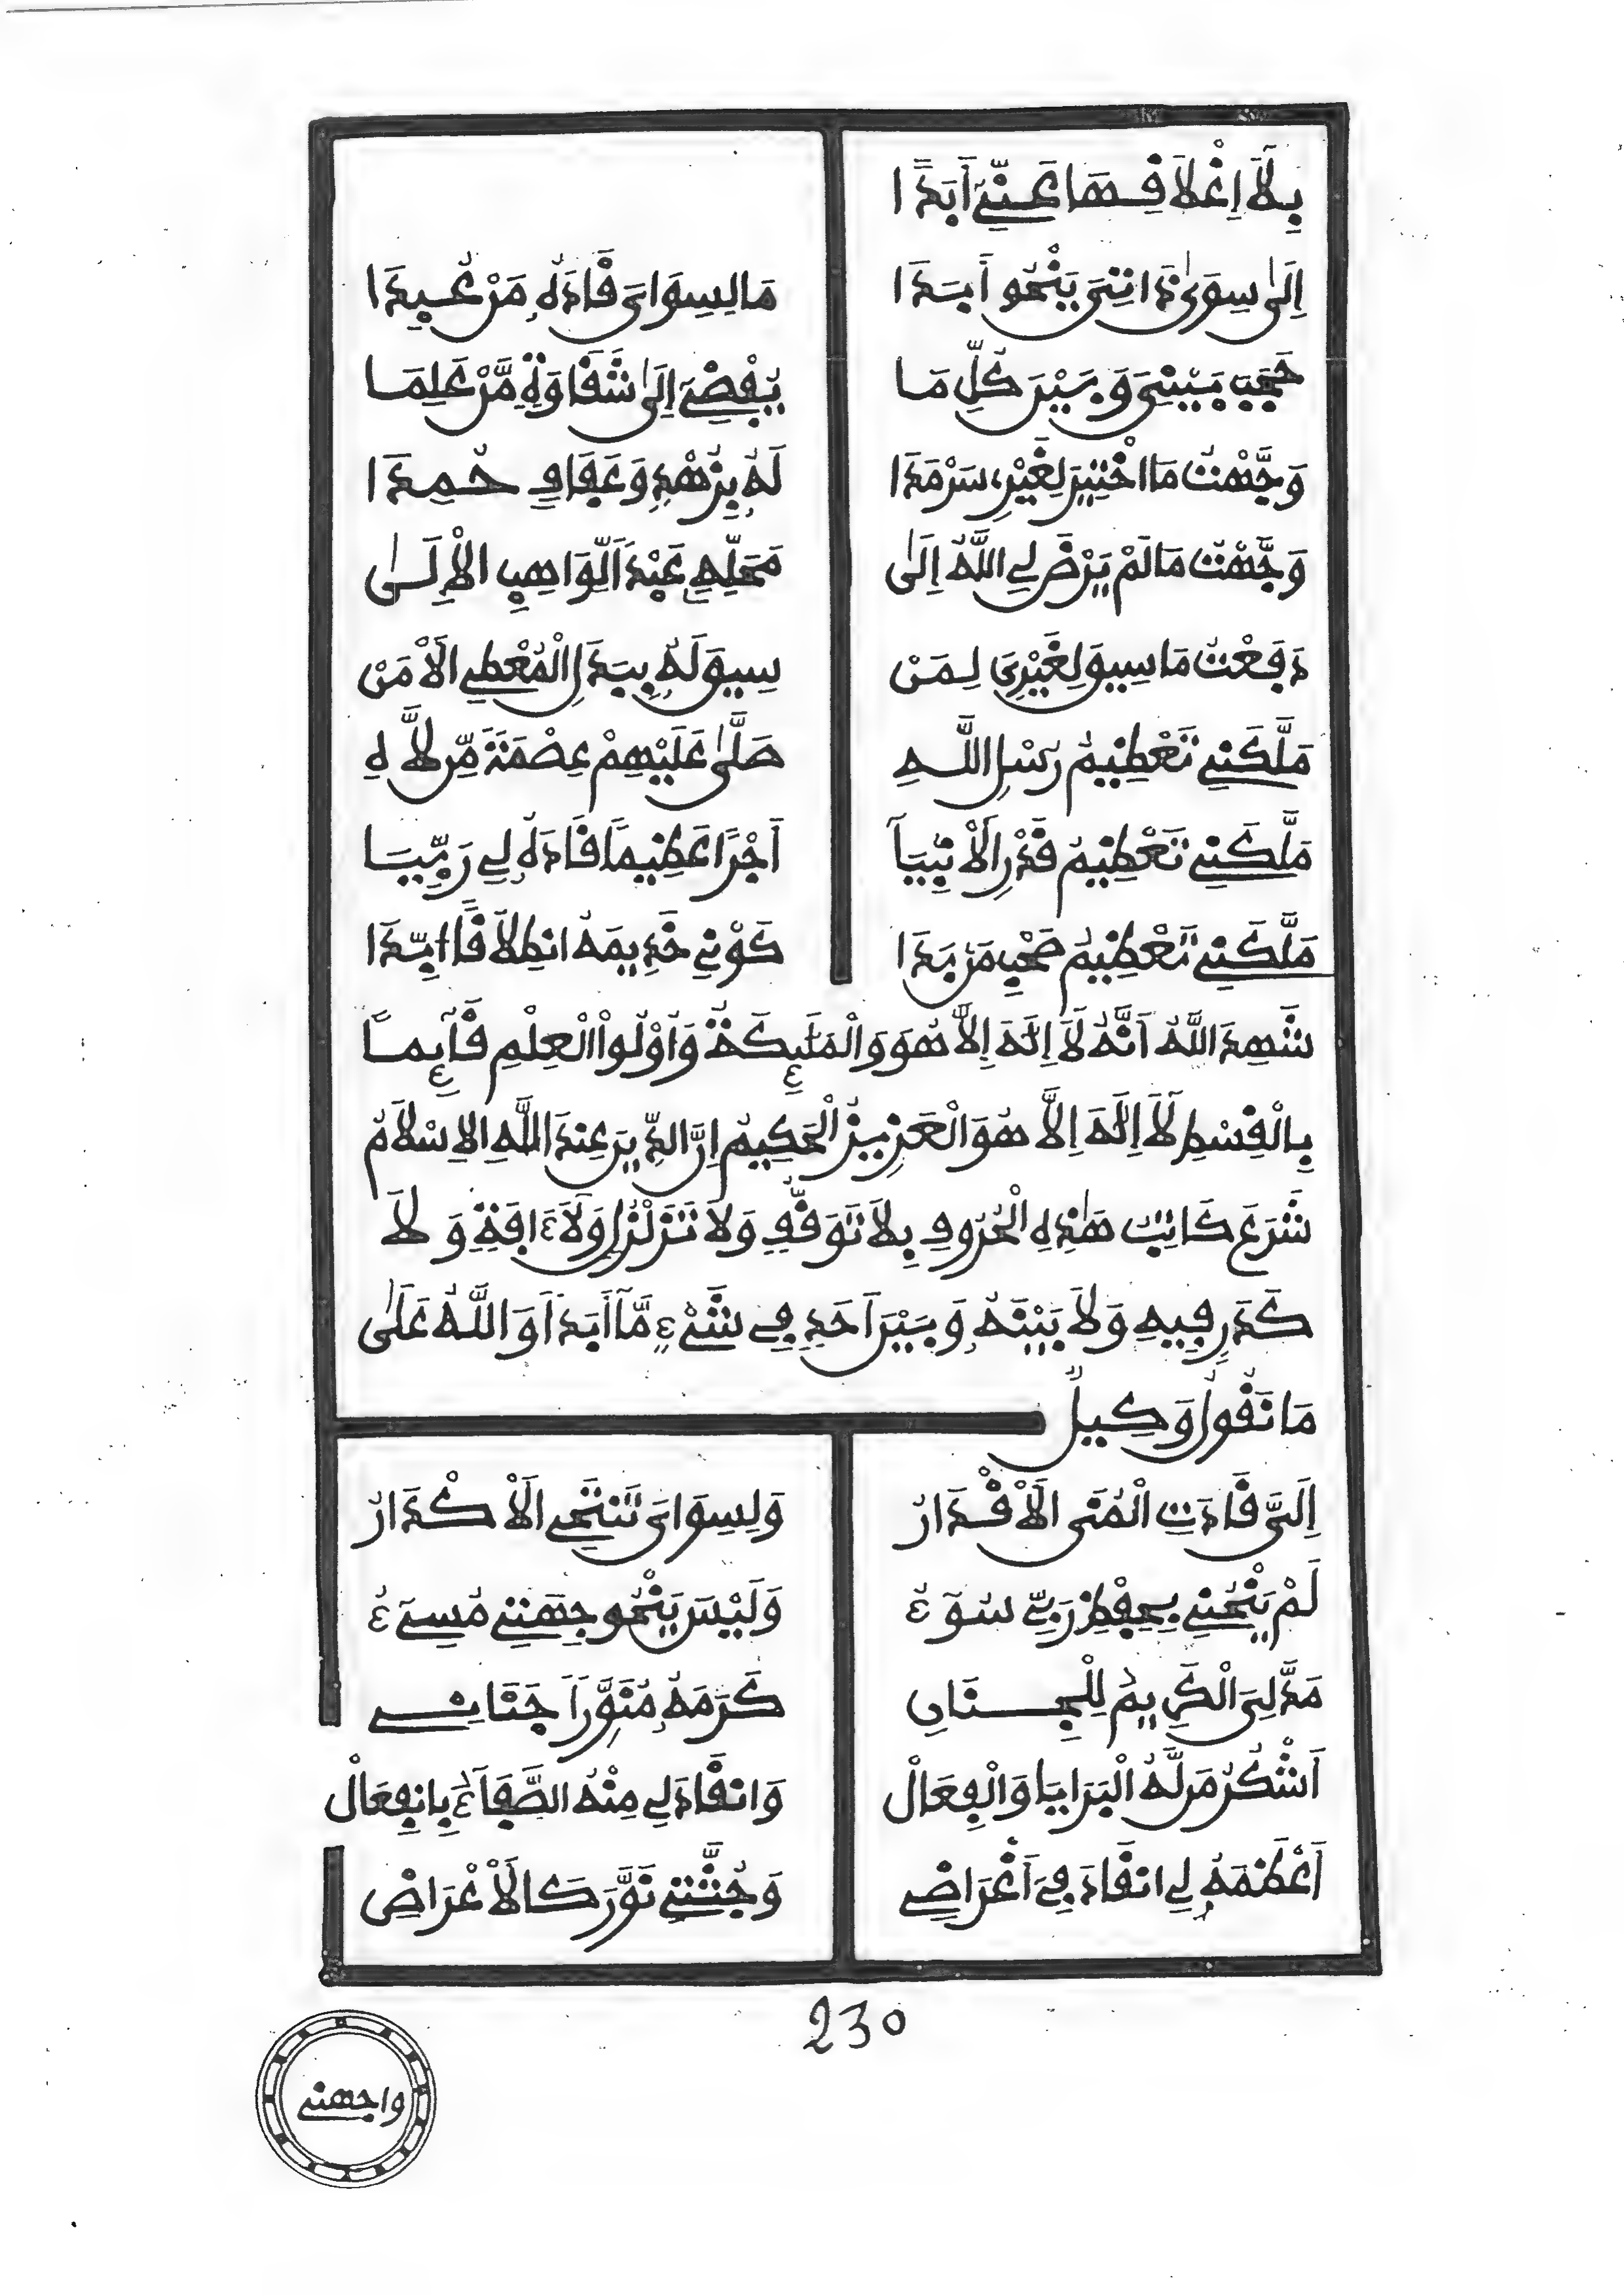 بِلَا إِغْلَاقِهَا عَنِّي أَبَدًا
إِلَىٰ سِوَىٰ ذَاتِيَ يَنْحُو أَبَدَا مَا لِسِوَايَ قَادَهُ مَنْ عُبِدَا
حَجَبَ بَيْنِي وَبَيْنَ كُلِّ مَا يُفْضِي إِلَىٰ شَقَاوَةٍ مَّنْ عَلِمَا
وَجَّهْتُ مَا اخْتِيرَ لِغَيْرِ سَرْمَدَا لَهُ بِزُهْدٍ وَعَفَافٍ حُمِدَا
وَجَّهْتُ مَا لَمْ يَرْضَ لِي اللَّهُ إِلَىٰ مَحَلِّهِ عَبْدَ الْوَاهِبِ الْإِلَىٰ
دَفَعْتُ مَا سِيقَ لِغَيْرِيَ لِمَنْ سِيقَ لَهُ بِيَدِ الْمُعْطِي الْأَمَنْ
مَلَّكَنِي تَعْظِيمُ رُسْلِ اللَّهِ صَلَّىٰ عَلَيْهِمْ عِصْمَةً مِّن لَّاهِ
مَلَّكَنِي تَعْظِيمُ قَدْرِ الْأَنْبِيَا أَجْرًا عَظِيمًا قَادَهُ لِي رَبِّيَا
مَلَّكَنِي تَعْظِيمُ صَحْبِ مَنْ بَدَا كَوْنِي خَدِيمَهُ انطِلَاقًا أَبَّدَا
شَهِدَ اللَّهُ أَنَّهُ لَا إِلَٰهَ إِلَّا هُوَ وَالْمَلَٰئِكَةُ وَأُوْلُواْ الْعِلْمِ قَآئِمًا
بِالْقِسْطِ لَا إِلَٰهَ إِلَّا هُوَ الْعَزِيزُ الْحَكِيمُ إِنَّ الدِّينَ عِندَ اللَّهِ الْإِسْلَامُ
شَرَعَ كَاتِبُ هَٰذِهِ الْحُرُوفِ بِلَا تَوَقُّفٍ وَلَا تَزَلْزُلٍ وَلَا ءَافَةٍ وَلَا
كَدَرٍ فِيهِ وَلَا بَيْنَهُ وَبَيْنَ أَحَدٍ فِي شَيْءٍ مَّا أَبَدًا وَاللَّهُ عَلَىٰ
مَا نَقُولُ وَكِيلٌ
إِلَيَّ قَادَتِ الْمُنَى الْأَقْدَارُ وَلِسِوَايَ تَنتَحِي الْأَكْدَارُ
لَمْ يَنْحُنِي بِحِفْظِ رَبِّي سُوٓءُ وَلَيْسَ يَنْحُو جِهَتِي مُسِيٓءُ
مَدَّ لِيَ الْكَرِيمُ لِلْجِنَانِ كَرَمَهُ مُنَوِّرًا جَنَانِي
أَشْكُرُ مَن لَّهُ الْبَرَايَا وَالْفِعَالْ وَانقَادَ لِي مِنْهُ الصَّفَاءُ بِانفِعَالْ
أَعْظَمَهُ لِي انقَادَ فِي أَغْرَاضِي وَجُثَّتِي نَوَّرَ كَالْأَعْرَاضِ
230
واجهني